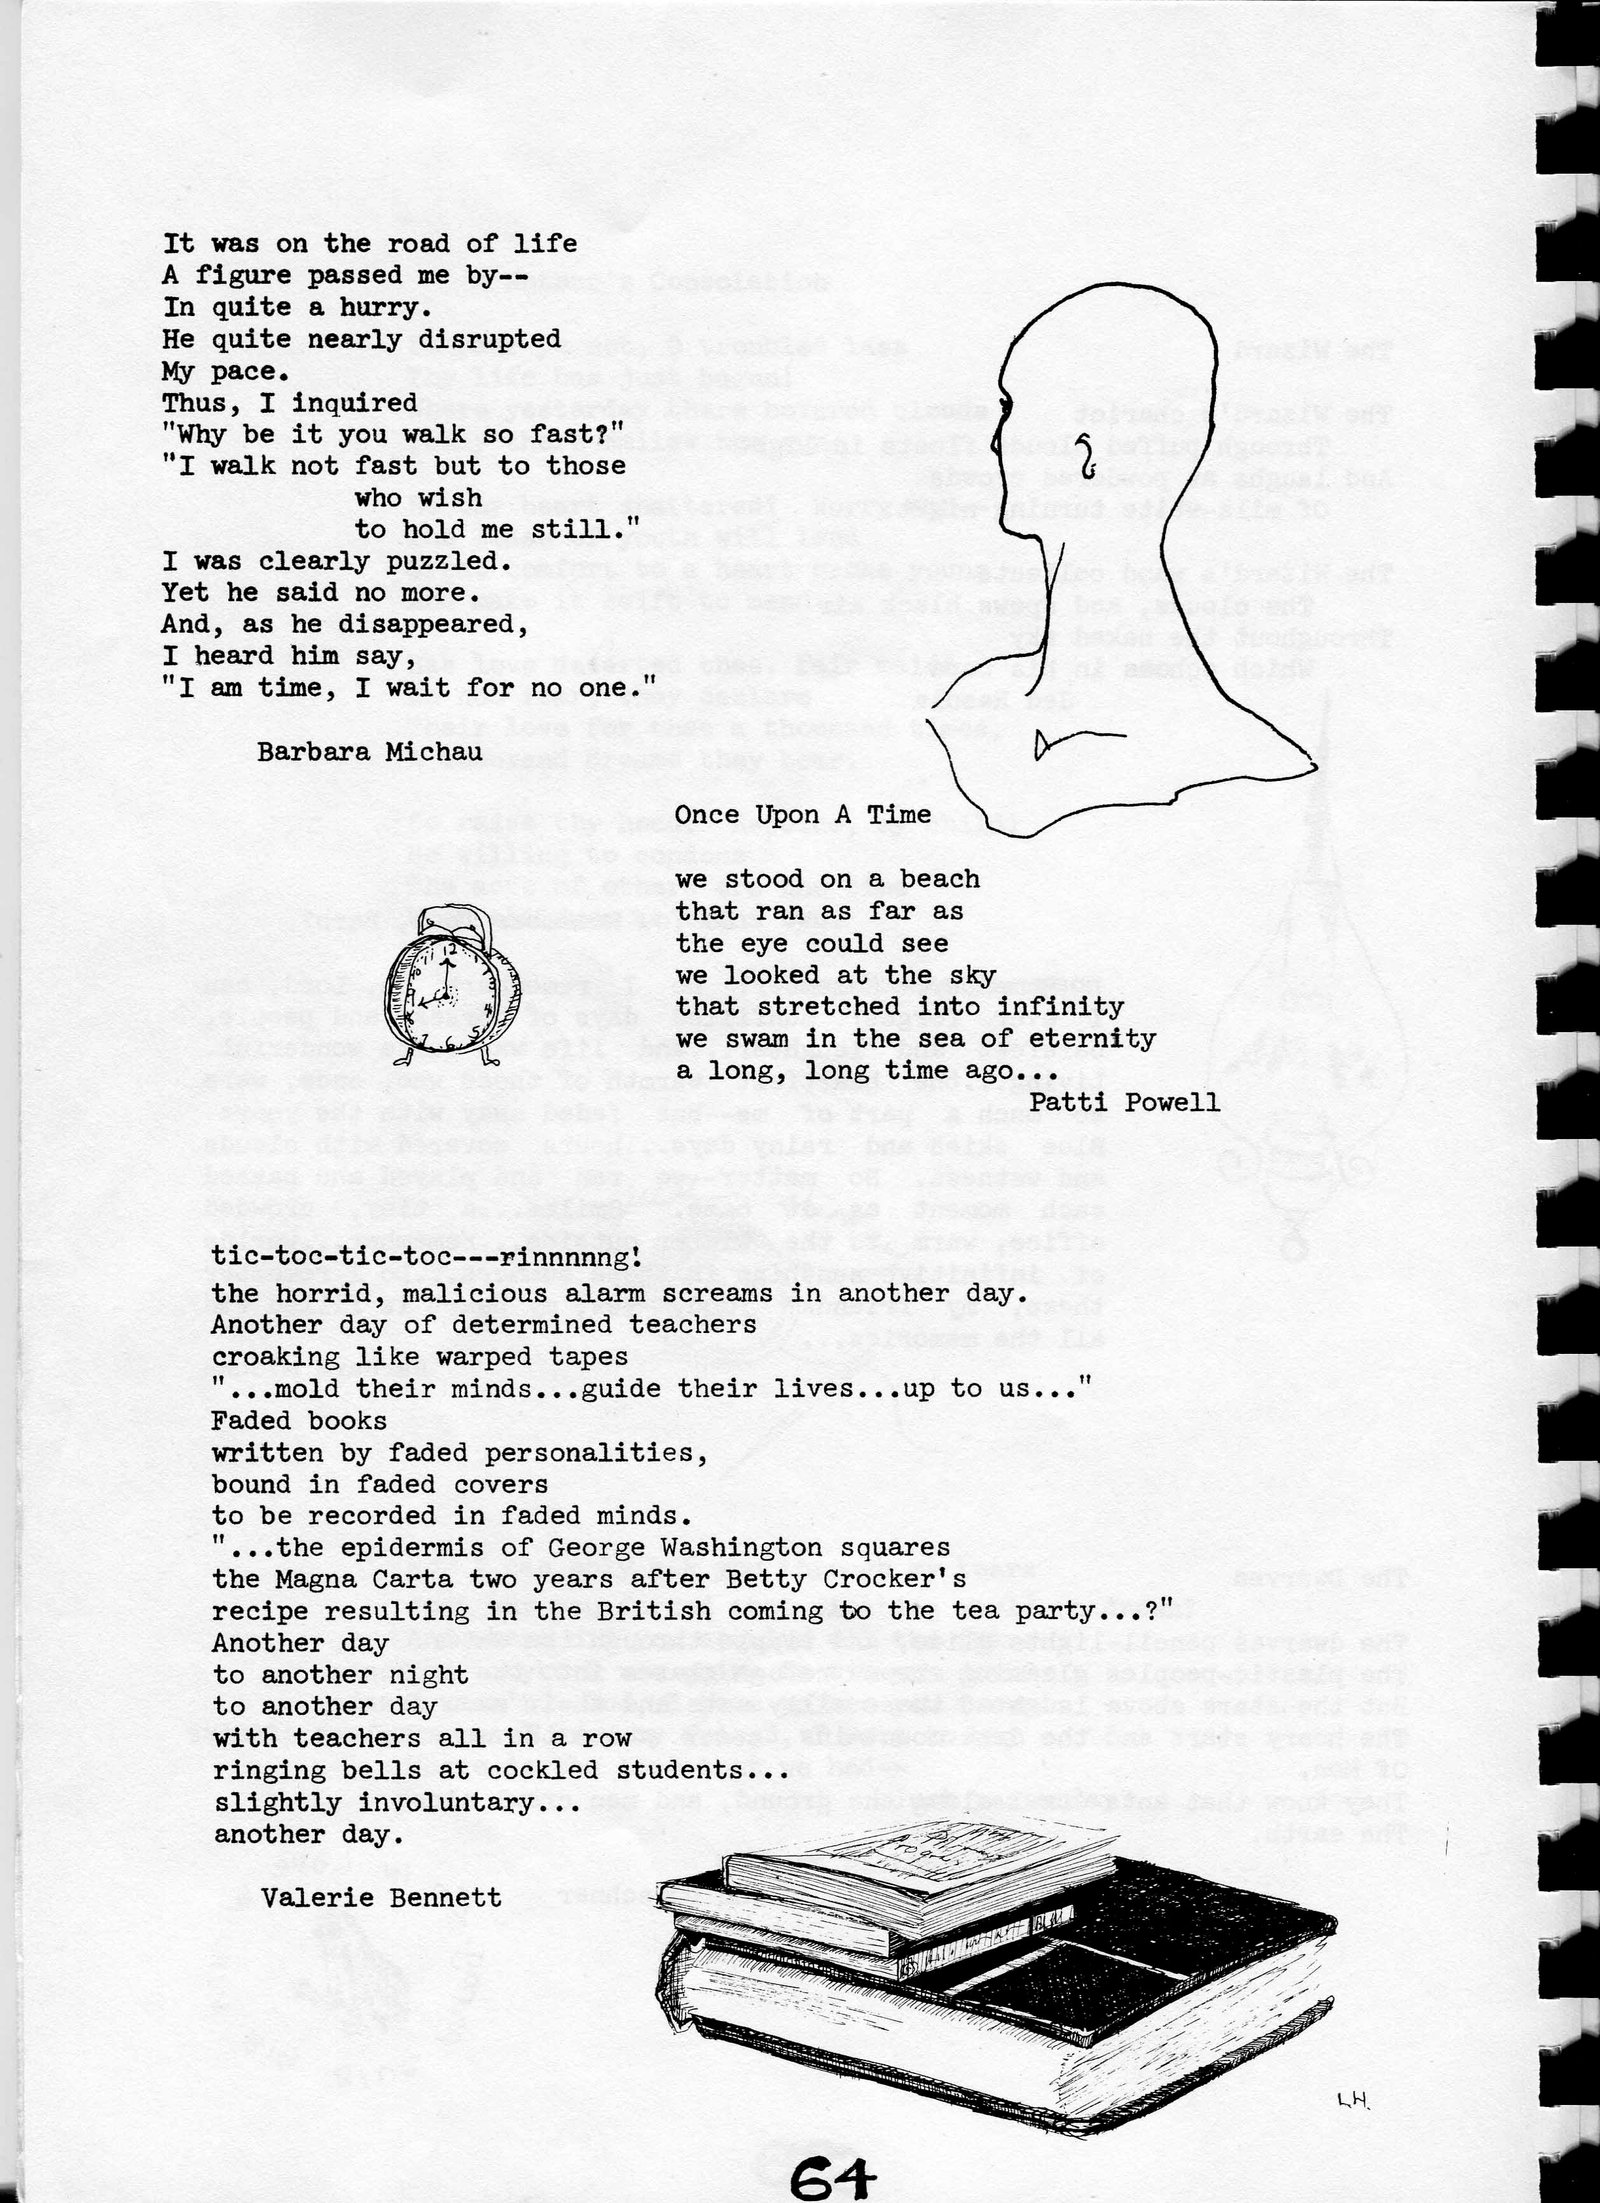 It was on the road of life
A figure passed me by--
In quite a hurry.
He quite nearly disrupted
My pace.
Thus, I inquired
"Why be it you walk so fast?"
"I walk not fast but to those
who wish
to hold me still."
I was clearly puzzled.
Yet he said no more.
And, as he disappeared,
I heard him say,
"I am time, I wait for no one."
Barbara Michau
Once Upon A Time
we stood on a beach
that ran as far as
the eye could see
we looked at the sky
that stretched into infinity
we swam in the sea of eternity
a long, long time ago...
Patti Powell
tic-toc-tic-toc---rinnnnng!
the horrid, malicious alarm screams in another day.
Another day of determined teachers
croaking like warped tapes
"...mold their minds...guide their lives...up to us..."
Faded books
written by faded personalities,
bound in faded covers
to be recorded in faded minds.
"...the epidermis of George Washington squares
the Magna Carta two years after Betty Crocker's
recipe resulting in the British coming to the tea party...?"
Another day
to another night
to another day
with teachers all in a row
ringing bells at cockled students...
slightly involuntary...
another day.
Valerie Bennett
L.H.
64